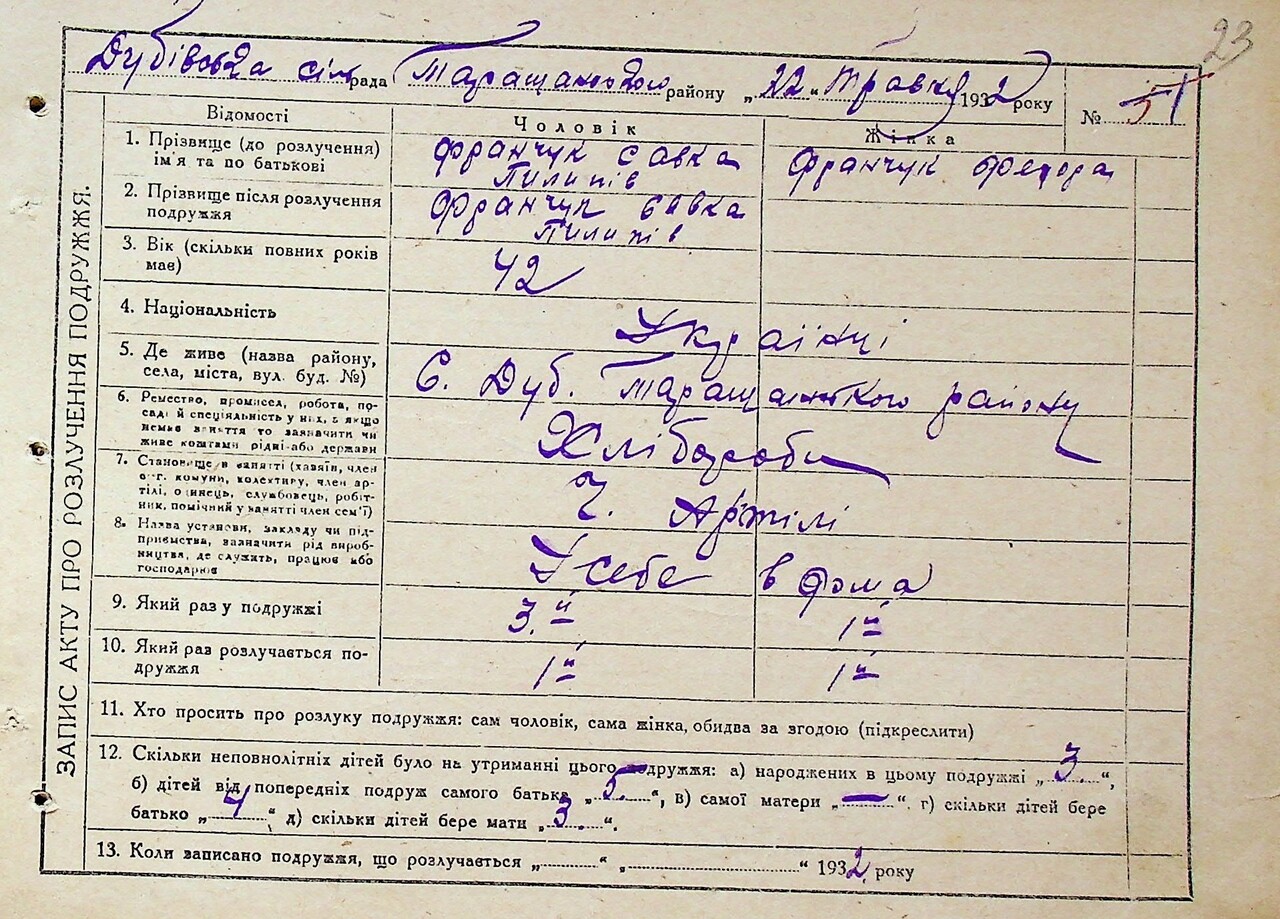 23
Дубівська сільрада Таращанського району „22“ травня 1932 року
№ 51
ЗАПИС АКТУ ПРО РОЗЛУЧЕННЯ ПОДРУЖЖЯ.
Відомості
Чоловік
Жінка
1. Прізвище (до розлучення) ім'я та по батькові
Франчук Савка
Пилипів
Франчук Федора
2. Прізвище після розлучення подружжя
Франчук Савка
Пилипів
3. Вік (скільки повних років має)
42
4. Національність
Українці
5. Де живе (назва району, села, міста, вул. буд. №)
С. Дуб. Таращанського району
6. Ремество, промисел, робота, посада й спеціяльність у них, а якщо немає заняття то зазначити чи живе коштами рідні або держави
Хлібороби
7. Становище в занятті (хазяїн, член с.-г. комуни, колективу, член артілі, одинець, службовець, робітник, помічний у занятті член сем'ї)
Ч. Артілі
8. Назва установи, закладу чи підприємства, зазначити рід виробництва, де служить, працює або господарює
У себе в дома
9. Який раз у подружжі
3.й
1й
10. Який раз розлучається подружжя
1й
1й
11. Хто просить про розлуку подружжя: сам чоловік, сама жінка, обидва за згодою (підкреслити)
12. Скільки неповнолітніх дітей було на утриманні цього подружжя: а) народжених в цьому подружжі „3“,
б) дітей від попередніх подруж самого батька „5“, в) самої матери „—“. г) скільки дітей бере
батько „4“ д) скільки дітей бере мати „3“.
13. Коли записано подружжя, що розлучається „........“ „........“ 1932 року